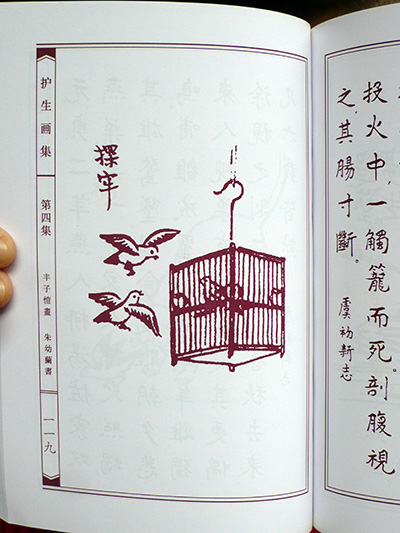 投火中，一觸籠而死。剖腹視
之，其腸寸斷。
虞初新志
探牢
护生画集 第四集 丰子愷畫 朱幼蘭書 一一九